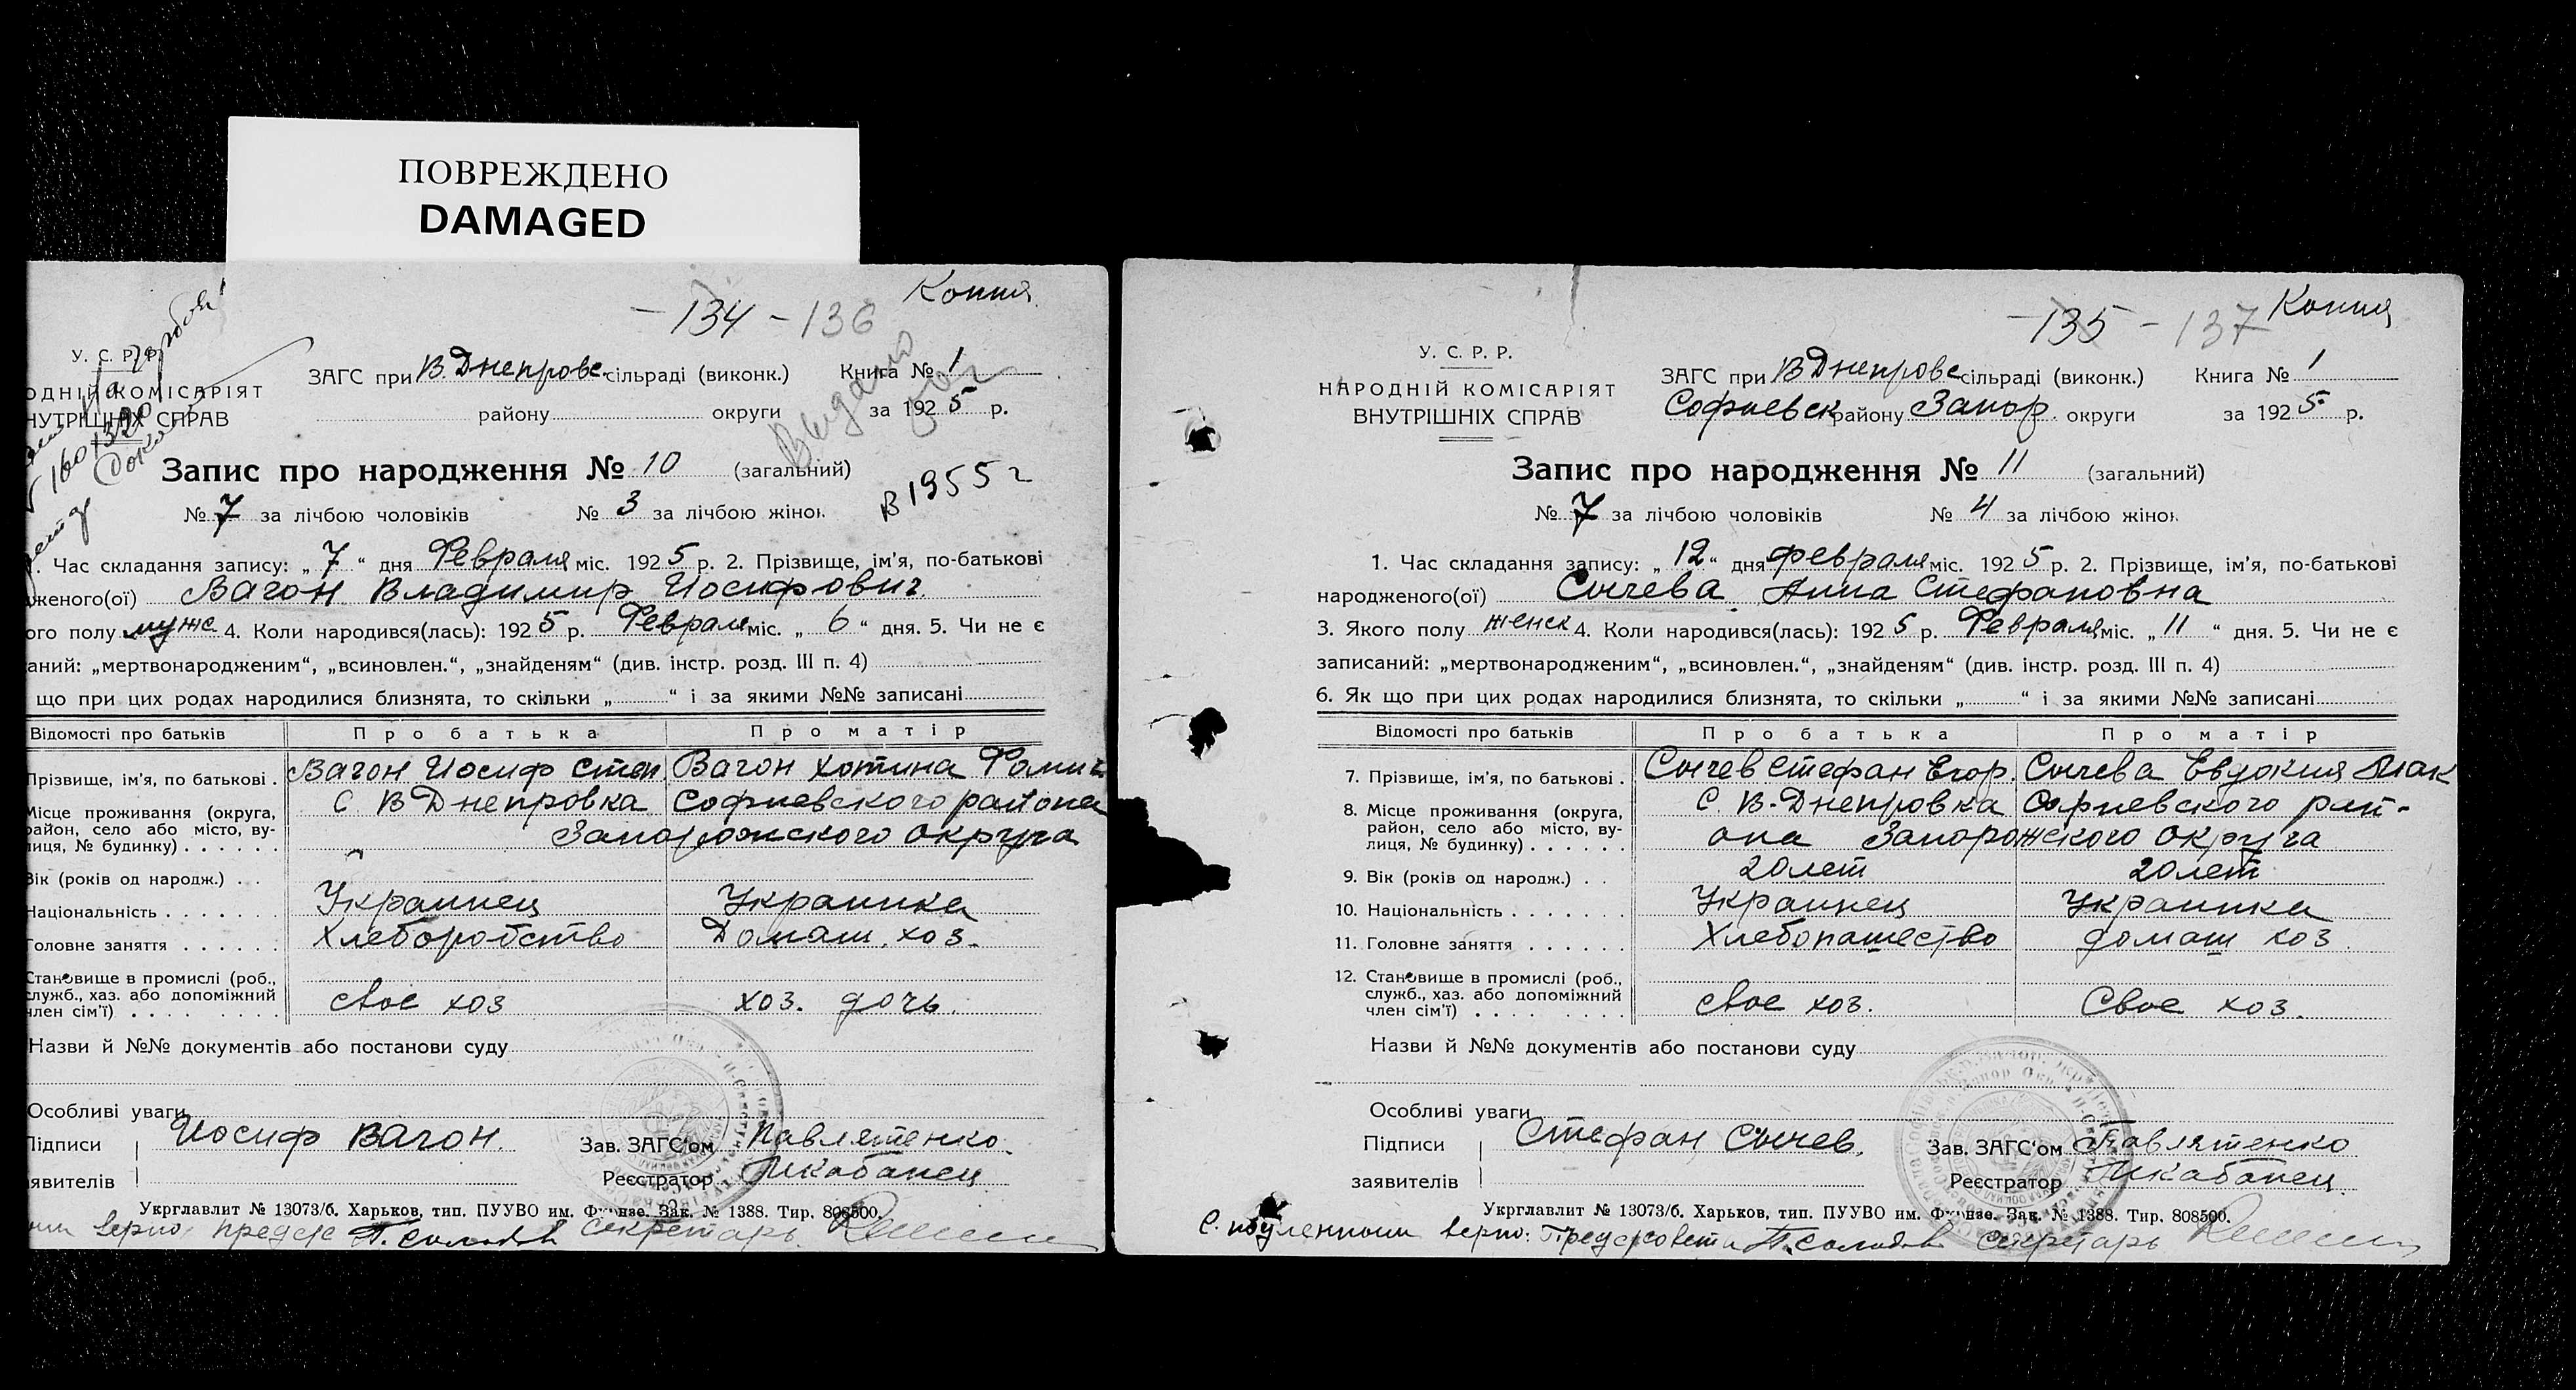 ПОВРЕЖДЕНО
DAMAGED
Копия
134 - 136
У. С. Р. Р.
ОДНІЙ КОМІСАРІЯТ
НУТРІШНІХ СПРАВ
ЗАГС при В. Днепровс. сільраді (виконк.) Книга № 1
району округи за 1925 р.
Выдано
Запис про народження № 10 (загальний)
В 1955 г
№ 7 за лічбою чоловіків № 3 за лічбою жінок
. Час складання запису: „ 7 “ дня Февраля міс. 1925 р. 2. Прізвище, ім’я, по-батькові
дженого(ої) Вагон Владимир Иосифович
ого полу мужс 4. Коли народився(лась): 1925 р. Февраля міс. „ 6 “ дня. 5. Чи не є
аний: „мертвонародженим“, „всиновлен.“, „знайденям“ (див. інстр. розд. III п. 4)
що при цих родах народилися близнята, то скільки „ “ і за якими №№ записані
Відомості про батьків Про батька Про матір
Прізвище, ім’я, по батькові . Вагон Иосиф Степ Вагон Хотина Фомин
Місце проживання (округа, район, село або місто, вулиця, № будинку) . . . . . . С. В Днепровка Софиевского района
Запорожского округа
Вік (років од народж.) . .
Національність . . . . . . . Украинец Украинка
Головне заняття . . . . . . Хлеборобство Домаш. хоз.
Становище в промислі (роб.,
служб., хаз. або допоміжний
член сім’ї) . . . . . . . . свое хоз хоз. дочь.
Назви й №№ документів або постанови суду
Особливі уваги
Підписи Иосиф Вагон. Зав. ЗАГС‘ом Павлятенко.
аявителів Реєстратор Шкабанец
Укрглавлит № 13073/б. Харьков, тип. ПУУВО им. Фрунзе. Зак. № 1388. Тир. 808500.
верно: предсе секретарь
Копия
135 - 137
У. С. Р. Р.
НАРОДНІЙ КОМІСАРІЯТ
ВНУТРІШНІХ СПРАВ
ЗАГС при В Днепровс сільраді (виконк.) Книга № 1
Софиевск району Запор. округи за 1925 р.
Запис про народження № 11 (загальний)
№ 7 за лічбою чоловіків № 4 за лічбою жінок
1. Час складання запису: „ 12 “ дня февраля міс. 1925 р. 2. Прізвище, ім’я, по-батькові
народженого(ої) Сычева Анна Стефановна
3. Якого полу женск 4. Коли народився(лась): 1925 р. Февраля міс. „ 11 “ дня. 5. Чи не є
записаний: „мертвонародженим“, „всиновлен.“, „знайденям“ (див. інстр. розд. III п. 4)
6. Як що при цих родах народилися близнята, то скільки „ “ і за якими №№ записані
Відомості про батьків Про батька Про матір
7. Прізвище, ім’я, по батькові . Сычев Стефан Егор. Сычева Евдокия Мак
8. Місце проживання (округа, район, село або місто, вулиця, № будинку) . . . . . . С. В-Днепровка Софиевского рай-
она Запорожского округа
9. Вік (років од народж.) . . 20 лет 20 лет
10. Національність . . . . . . . Украинец Украинка
11. Головне заняття . . . . . . Хлебопашество домаш хоз.
12. Становище в промислі (роб.,
служб., хаз. або допоміжний
член сім’ї) . . . . . . . . свое хоз. Свое хоз.
Назви й №№ документів або постанови суду
Особливі уваги
Підписи Стефан Сычев. Зав. ЗАГС‘ом Павлятенко
заявителів Реєстратор Шкабанец.
Укрглавлит № 13073/б. Харьков, тип. ПУУВО им. Фрунзе. Зак. № 1388. Тир. 808500.
С подленным верно: Предсельсовета секретарь